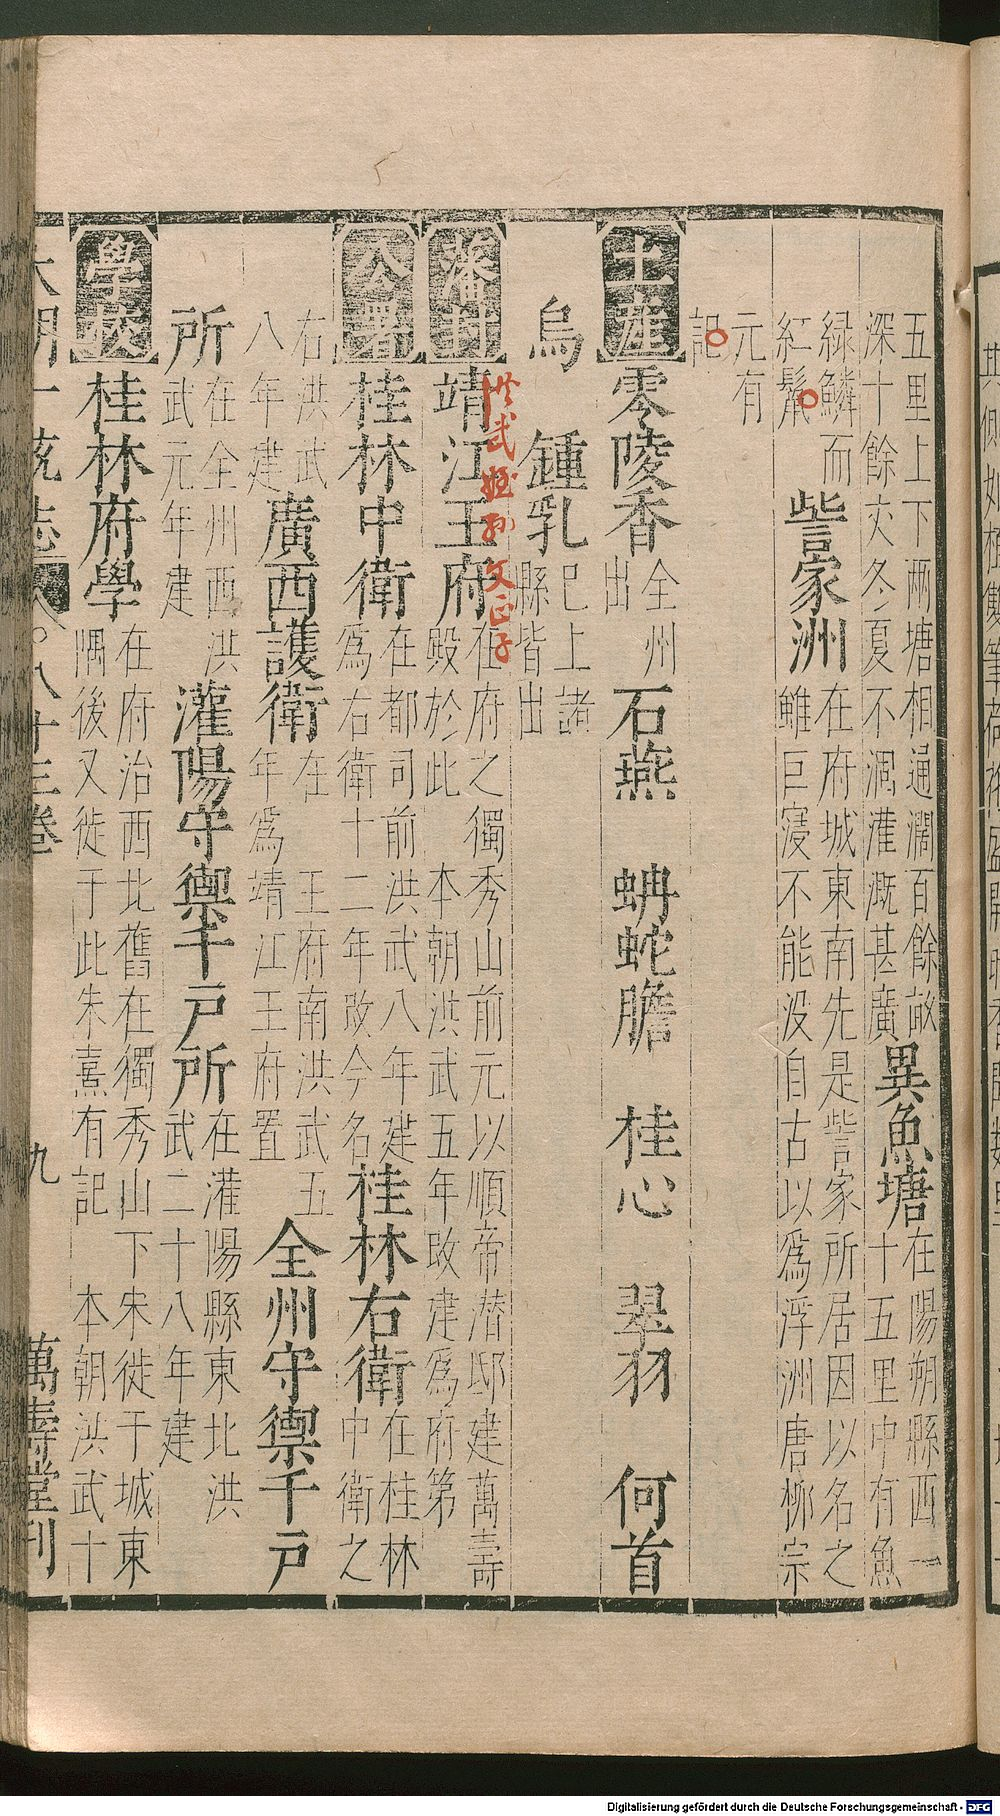 五里上下兩塘相通濶百餘畝
深十餘丈冬夏不涸灌溉甚廣
異魚塘
在陽朔縣西一
十五里中有魚
綠鱗而
紅鬛
訾家洲
在府城東南先是訾家所居因以名之
雖巨寖不能没自古以爲浮洲唐栁宗
元有
記
土産
零陵香
全州
出
石燕
蚺蛇膽
桂心
翠羽
何首
烏
鍾乳
巳上諸
縣皆出
藩封
靖江王府
在府之獨秀山前元以順帝潛邸建萬壽
殿於此 本朝洪武五年改建爲府第
洪武姪孫文正子
公署
桂林中衛
在都司前洪武八年建
爲右衛十二年改今名
桂林右衛
在桂林
中衛之
右洪武
八年建
廣西護衛
在 王府南洪武五
年爲靖江王府置
全州守禦千戸
所
在全州西洪
武元年建
灌陽守禦千戸所
在灌陽縣東北洪
武二十八年建
學校
桂林府學
在府治西北舊在獨秀山下宋徙于城東
隅後又徙于此朱熹有記 本朝洪武十
大明一統志
八十三卷
九
萬壽堂刊
Digitalisierung gefördert durch die Deutsche Forschungsgemeinschaft - DFG